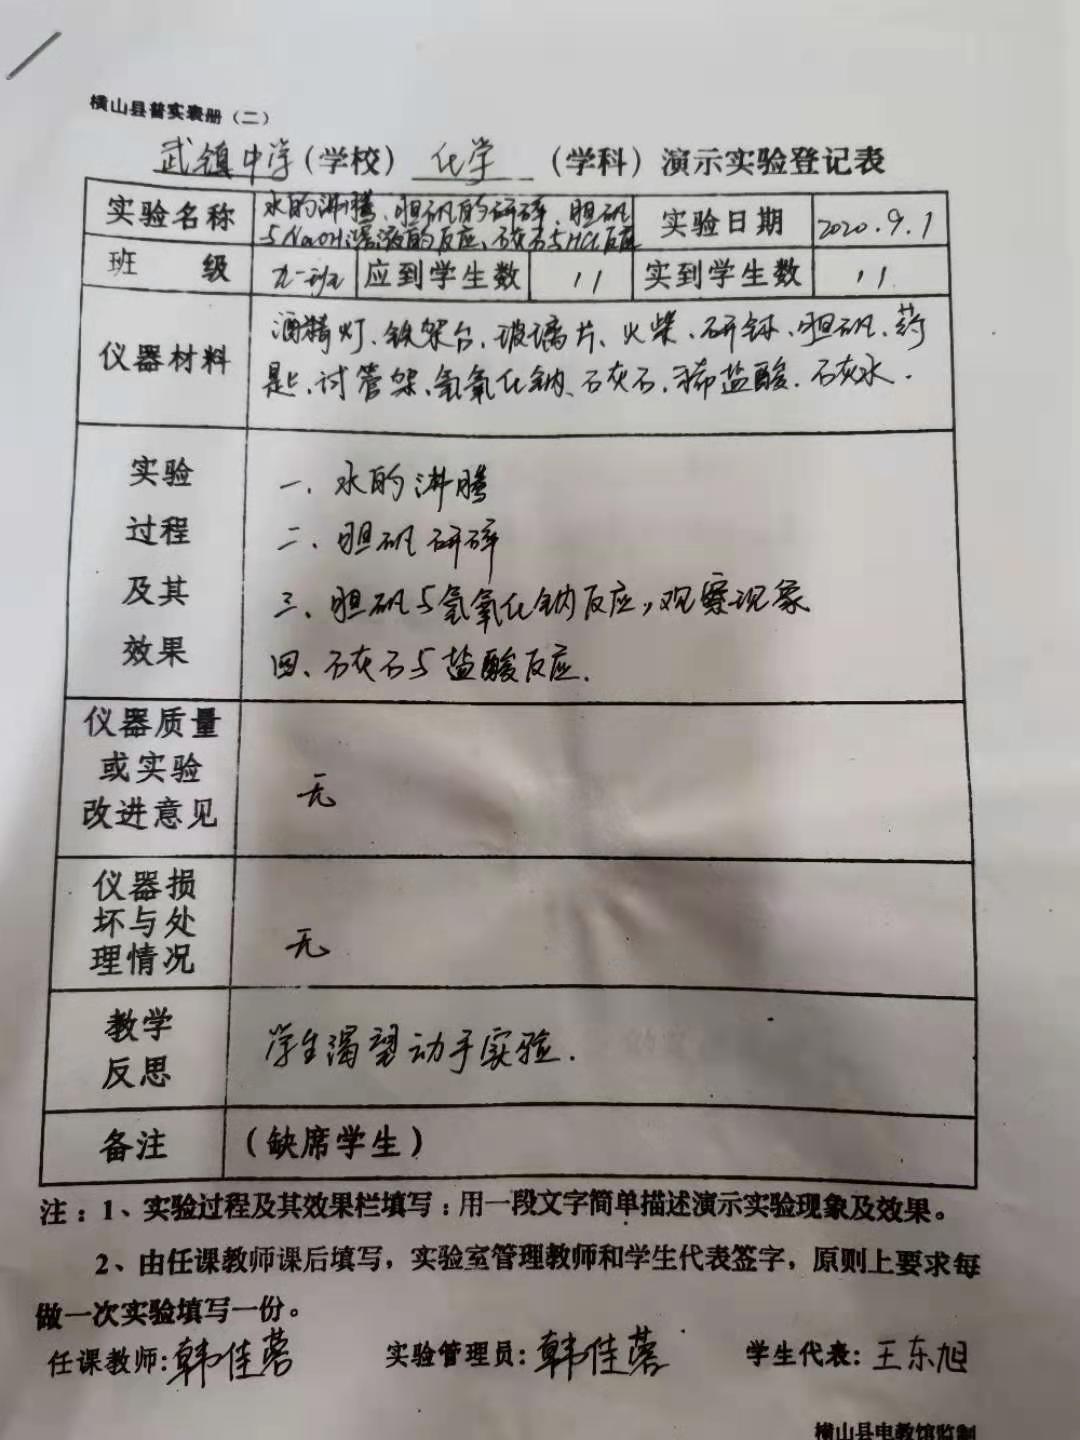 横山县普实表册（二）
武镇中学（学校）化学（学科）演示实验登记表
实验名称 水的沸腾、胆矾的研碎、胆矾与NaOH溶液的反应、石灰石与HCl反应 实验日期 2020.9.1
班级 九一班 应到学生数 11 实到学生数 11
仪器材料 酒精灯、铁架台、玻璃片、火柴、研钵、胆矾、药
匙、试管架、氢氧化钠、石灰石、稀盐酸.石灰水.
实验
过程
及其
效果
一、水的沸腾
二、胆矾研碎
三、胆矾与氢氧化钠反应，观察现象
四、石灰石与盐酸反应.
仪器质量
或实验
改进意见
无
仪器损
坏与处
理情况
无
教学
反思
学生渴望动手实验.
备注 （缺席学生）
注：1、实验过程及其效果栏填写：用一段文字简单描述演示实验现象及效果。
2、由任课教师课后填写，实验室管理教师和学生代表签字，原则上要求每
做一次实验填写一份。
任课教师:韩佳蓉 实验管理员:韩佳蓉 学生代表:王东旭
横山县电教馆监制